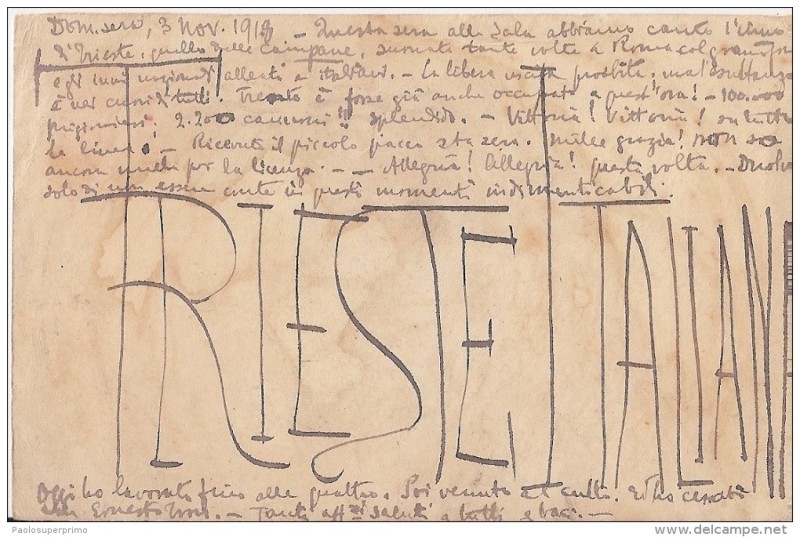 Dom. sera, 3 Nov. 1918 - Questa sera alla Sala abbiamo l'inno
di Trieste, quello delle campane, suonato tante volte a Roma col
e gli inni nazionali alleati e italiani. - La libera uscita proibita, ma l'esultanza
è nei cuori di tutti. Trento è forse già anche occupato a quest'ora! - 100.000
prigionieri. 2.200 cannoni!! splendido. - Vittoria! Vittoria! su tutta
la linea! - Ricevuto il piccolo pacco stasera. mille grazie! non so
ancora nulla per la licenza. - - Allegria! Allegria! questa volta. -
solo di non essere in questi momenti indimenticabili.
TRIESTE ITALIANA
Oggi ho lavorato fino alle quattro. Poi venuto al culto. Ed ho
Ernesto - Tanti aff.si saluti a tutti e baci. -
Paolosuperprimo
delcampe.net